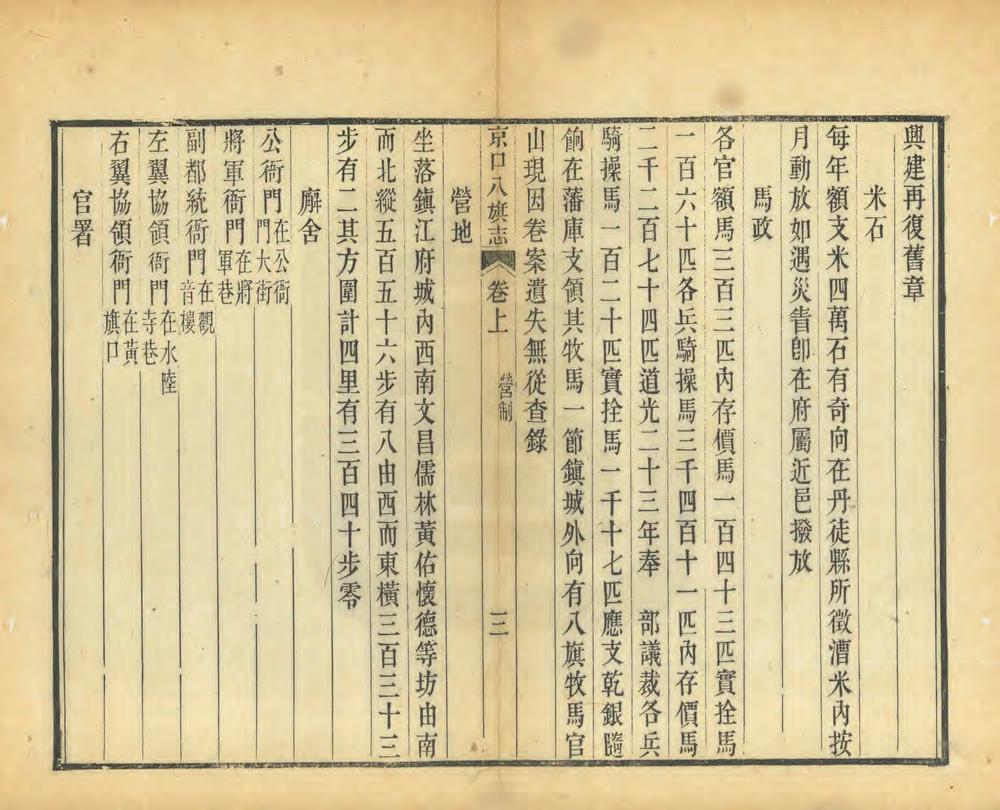 興建再復舊章
米石
每年額支米四萬石有奇向在丹徒縣所徵漕米內按
月動放如遇災眚卽在府屬近邑撥放
馬政
各官額馬三百三匹內存價馬一百四十三匹實拴馬
一百六十匹各兵騎操馬三千四百十一匹內存價馬
二千二百七十四匹道光二十三年奉　部議裁各兵
騎操馬一百二十匹實拴馬一千十七匹應支乾銀隨
餉在藩庫支領其牧馬一節鎮城外向有八旗牧馬官
山現因卷案遺失無從查錄
京口八旗志　卷上　營制　三
營地
坐落鎮江府城內西南文昌儒林黃佑懷德等坊由南
而北縱五百五十六步有八由西而東橫三百三十三
步有二其方圍計四里有三百四十步零
廨舍
公衙門在公衙門大街
將軍衙門在將軍巷
副都統衙門在觀音樓
左翼協領衙門在水陸寺巷
右翼協領衙門在黃旗口
官署